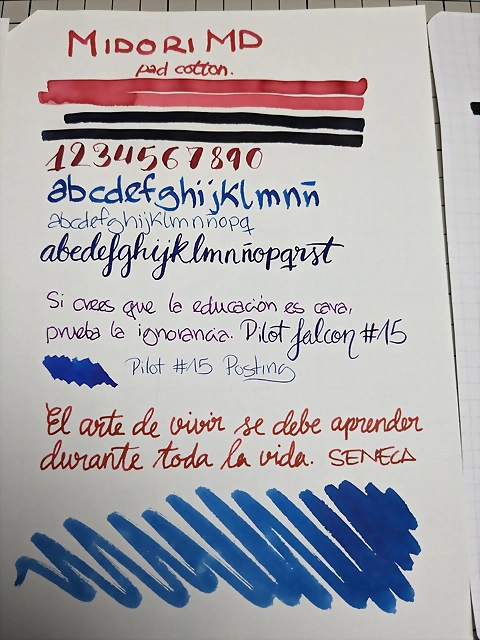 MIDORI MD
pad cotton.
1234567890
abcdefghijklmnñ
abcdefghijklmnñopq
abcdefghijklmnñopqrst
Si crees que la educación es cara,
prueba la ignorancia. Pilot falcon #15
Pilot #15 Posting
El arte de vivir se debe aprender
durante toda la vida. SENECA